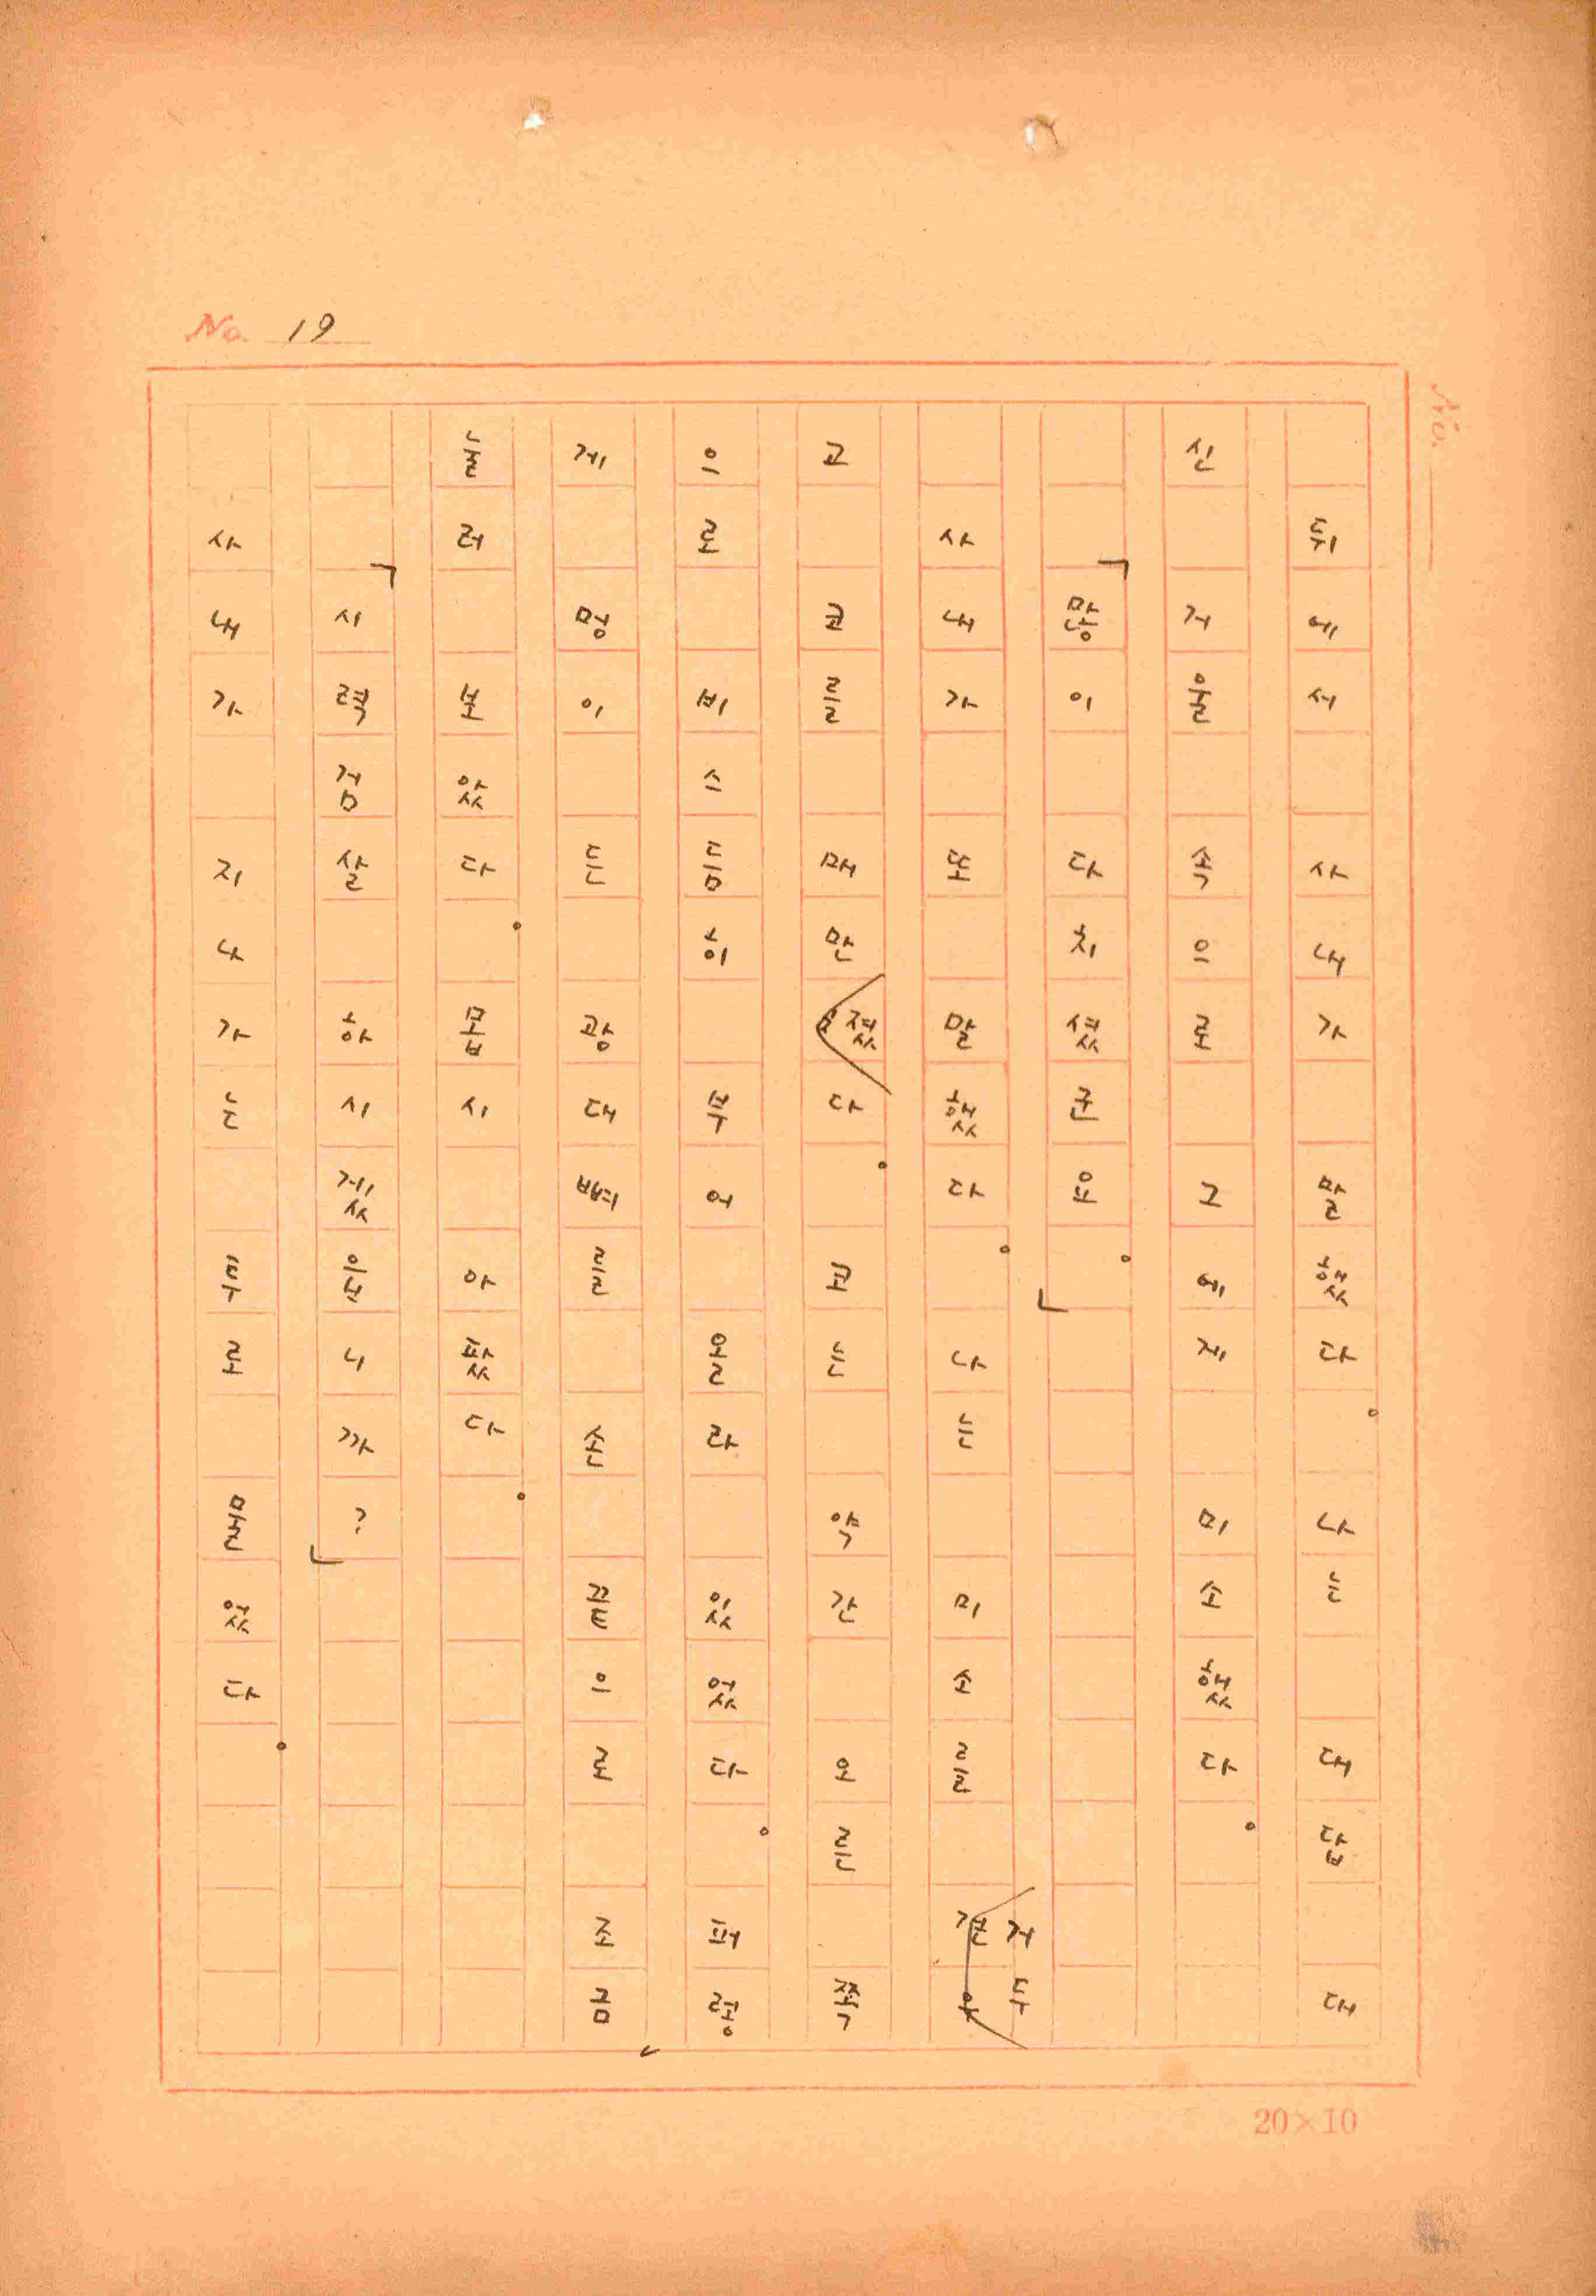 No. 19
No.
뒤에서 사내가 말했다. 나는 대답 대
신 거울 속으로 그에게 미소했다.
「많이 다치셨군요.」
사내가 또 말했다. 나는 미소를 거두
고 코를 매만졌다. 코는 약간 오른쪽
으로 비스듬히 부어 올라 있었다. 퍼렇
게 멍이 든 광대뼈를 손끝으로 조금
눌러 보았다. 몹시 아팠다.
「시력검살 하시겠읍니까?」
사내가 지나가는 투로 물었다.
20×10